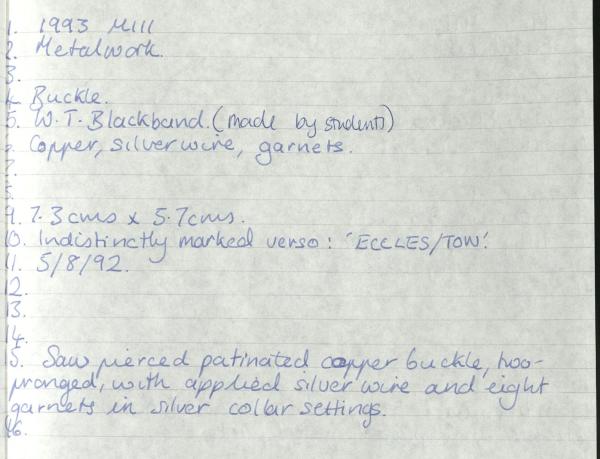 1. 1993 Mill
2. Metalwork.
3.
4. Buckle.
5. W.T. Blackband. (made by student)
6. Copper, silver wire, garnets.
7.
8.
9. 7.3cms x 5.7cms.
10. Indistinctly marked verso: 'ECCLES/TOW'.
11. 5/8/92.
12.
13.
14.
15. Saw pierced patinated copper buckle, two-
pronged, with applied silver wire and eight
garnets in silver collar settings.
16.